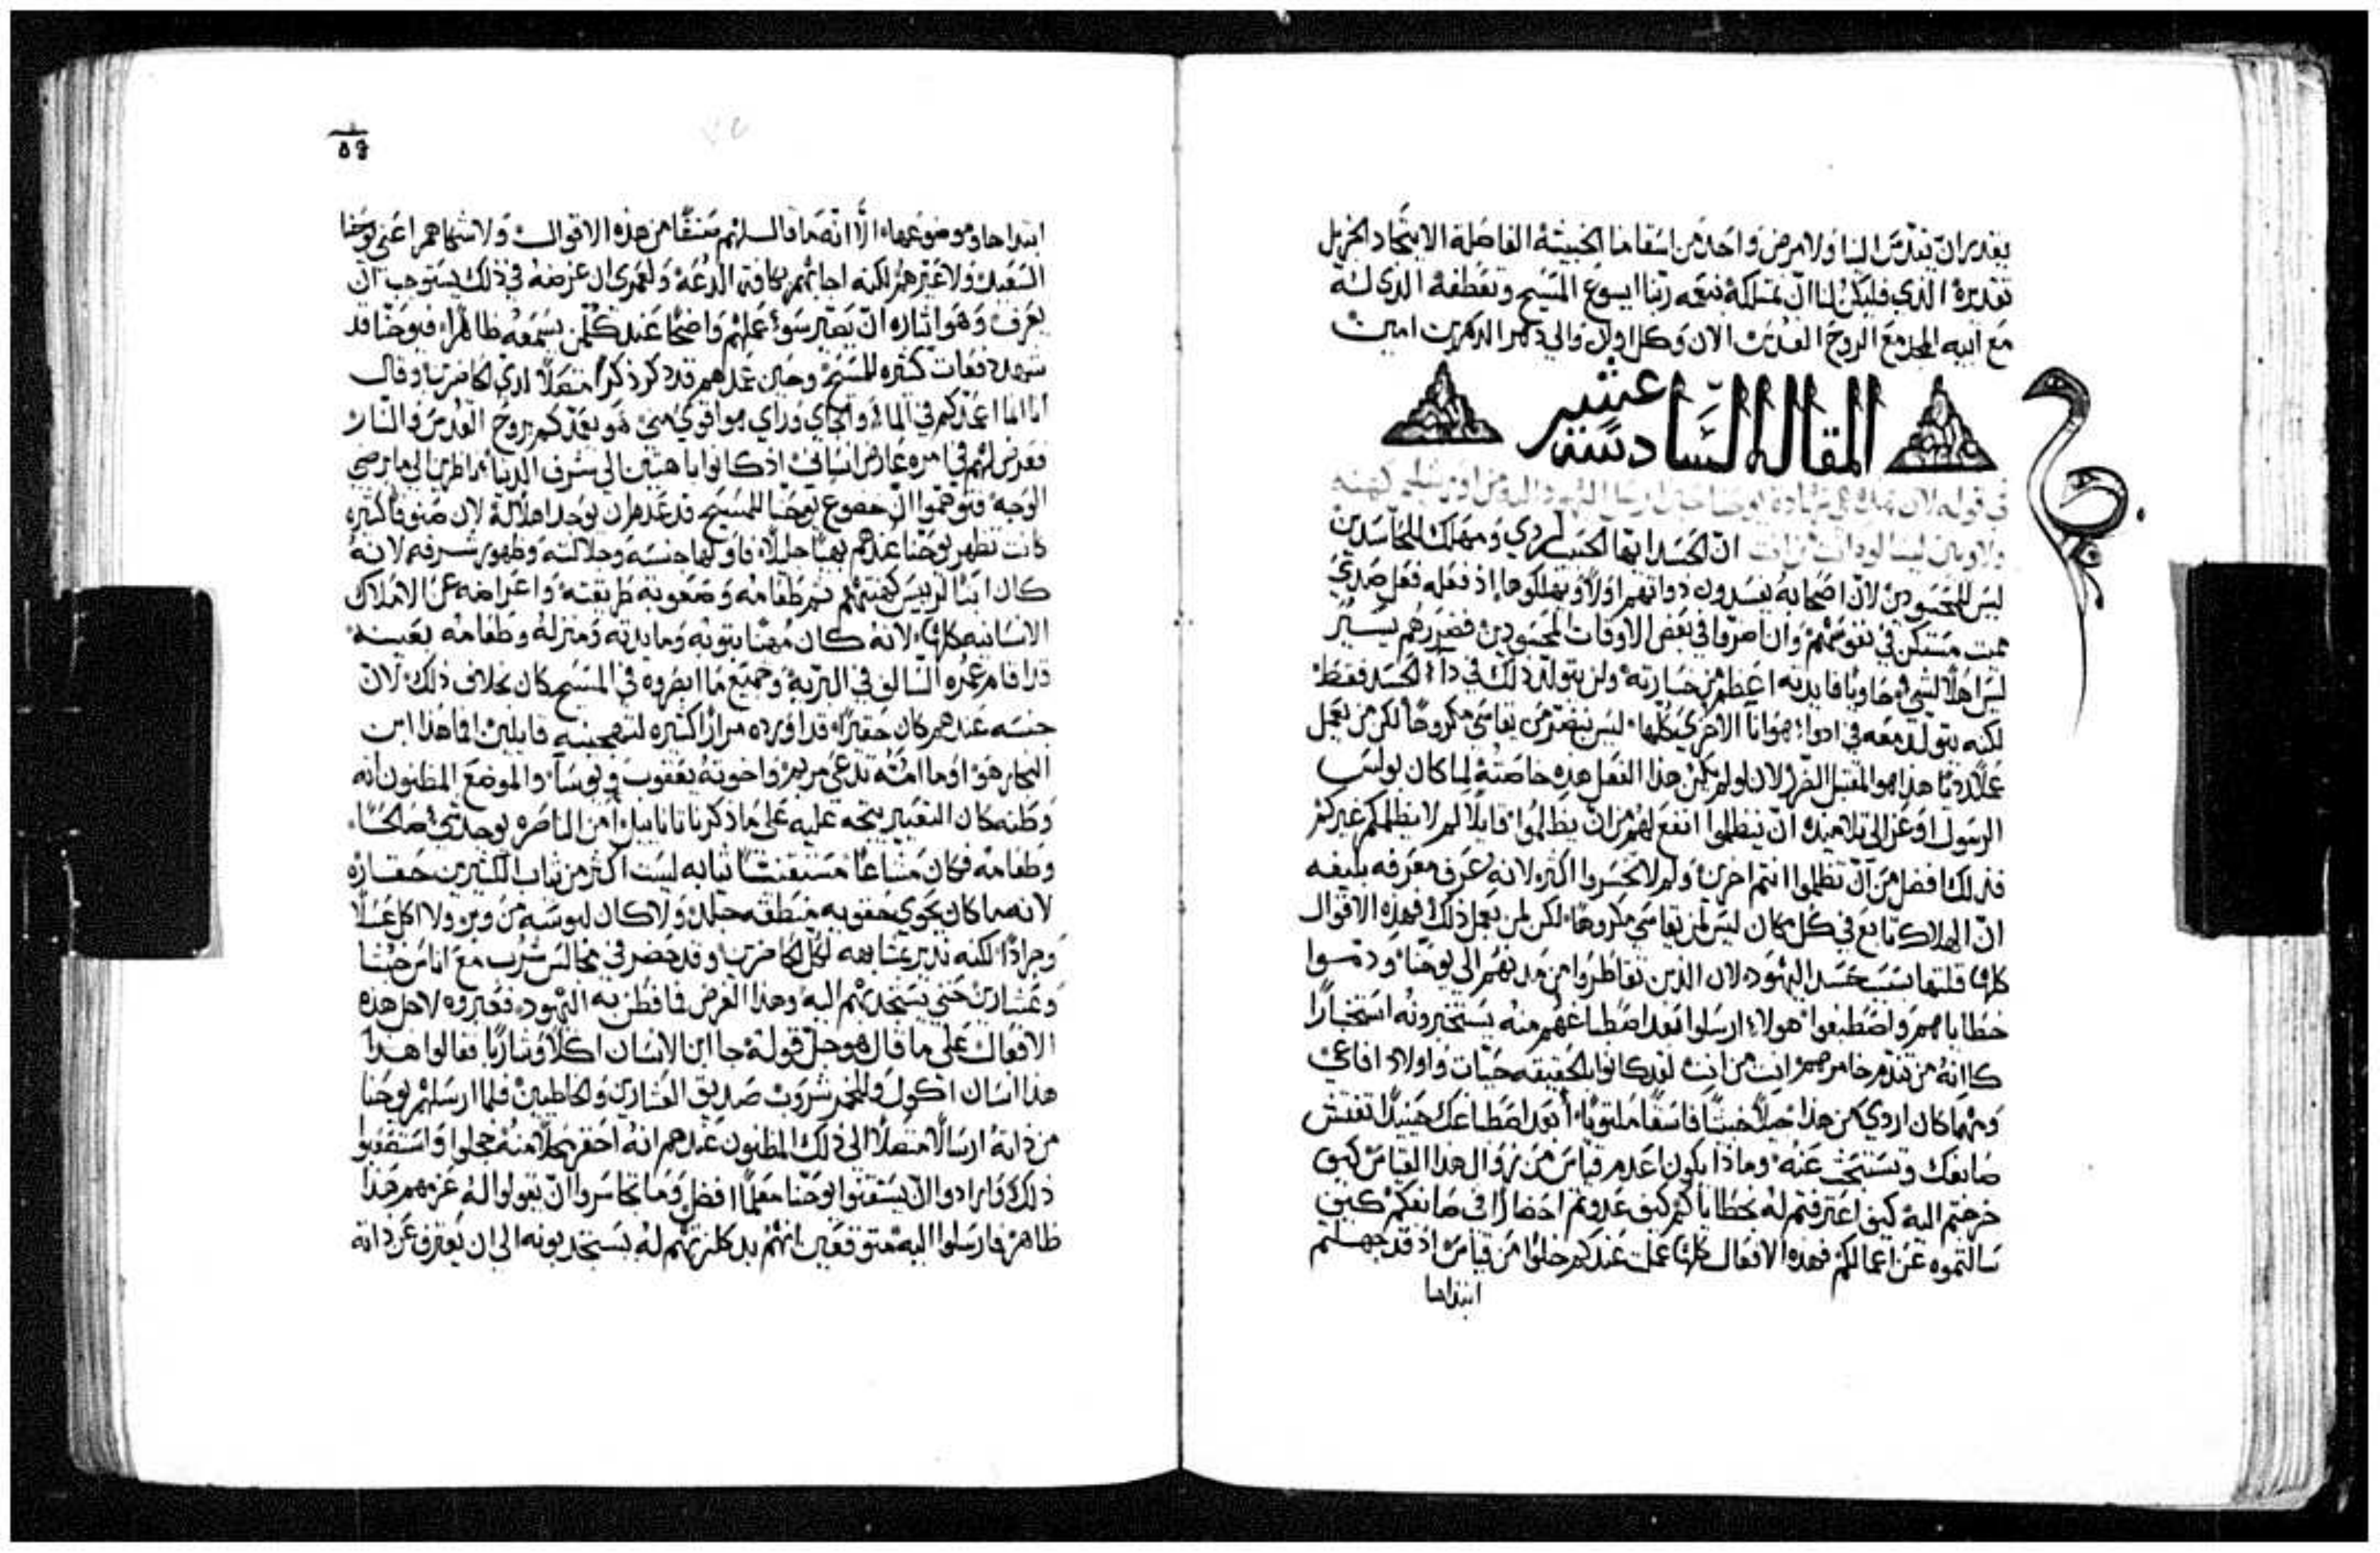 يقدر ان يقدس الينا ولا مرض واحد من اسقامنا الخبيثة الفاضلة الا يتحاد الجزيل
تقديره الذي فليكن لنا ان نمتلكه بنعمه ربنا ايسوع المسيح وتعطفه الذي له
مع ابيه المجد مع الروح القدس الان وكل اوان والي دهر الداهرين امين
المقاله السادسه عشر
في قوله لان هذه هي شهاده يوحنا حين ارسل اليهود اليه من اورشليم كهنه
ولاويين ليسالوه انت من انت ان الحسد ايها الحبيب لردي ومهلك للحاسدين
ليس للمحسودين لان اصحابه يفسدون ذواتهم اولا ويهلكوها اذ فعله فعل صدي
مميت مستكن في نفوسهم وان اضروا في بعض الاوقات المحسودين فضررهم يسير
ليس اهلا لشي حاويا فايدته اعظم من خسارته ولن يتولد ذلك في داء الحسد فقط
لكنه يتولد معه في ادوا هوانا الاخري كلها ليس يتضر من يقاسي مكروها لكن من يعمل
عملا رديا هذا هو المقتبل الضرر لان لو لم يكن هذا الفعل هذه خاصته لما كان بولس
الرسول اوعز الي تلاميذه ان ينظلموا انفع لهم من ان يظلموا قايلا لم لا يظلمكم غيركم
فذلك افضل من ان تظلموا انتم اخرين ولم لا تخسروا اكثر لانه عرف معرفه بليغه
ان الهلاك تابع في كل مكان ليس لمن يقاسي مكروها لكن لمن يعمل ذلك فهذه الاقوال
كلها قلتها بسبب حسد اليهود لان الذين تقاطروا من مدنهم الي يوحنا وذموا
خطاياهم واصطبغوا هولاء ارسلوا بعد اصطباغهم منه يستخبرونه استخبارا
كاانه من تندم خامرهم انت من انت لقد كانوا بالحقيقه حيات واولاد افاعي
ومهما كان اردي من هذا جيلا خبيثا فاسقا ملتويا أبعد اصطباغك حينيذ تفتش
صابغك وتستبحث عنه وماذا يكون اعدم قياس من زوال هذا القياس كيف
خرجتم اليه كيف اعترفتم له بخطاياكم كيف عدوتم احضارا الي صابغكم كيف
سالتموه عن اعمالكم فهذه الافعال كلها عملت عندكم خلوا من قياس اذ قد جهلتم
ابتداها
٥٩
ابتداها وموضوعها الا انه ما قال لهم صنفا من هذه الاقوال ولا شكاهم اعني يوحنا
السعيد ولا عيرهم لكنه اجابهم بكافة الدعه ولعمري ان غرضه في ذلك يستوجب ان
يعرف وهو ايثاره ان يصير سوء عملهم واضحا عند كل من يسمعه ظاهرا فيوحنا قد
شهد دفعات كثيره للمسيح وحين عمدهم قد ذكر ذكرا متصلا لدي الحاضرين وقال
انا انما اعمدكم في الماء والجاي وراي هو اقوي مني هو يعمدكم بروح القدس والنار
فعرض لهم في امره عارض انساني اذ كانوا باهتين الي شرف الدنيا ناظرين الي ما يرضي
الوجه فتوهموا ان خضوع يوحنا للمسيح قد عدم ان يوجد اهلا له لان صنوفا كثيره
كانت تظهر يوحنا عندهم بهيا جليلا فاولها جنسه وجلالته وظهور شرفه لانه
كان ابنا لرييس كهنتهم ثم طعامه وصعوبة طريقته واعراضه عن الاملاك
الانسانيه كلها لانه كان مهينا بثوبه ومايدته ومنزله وطعامه بعينه
قد اقام عمره السالف في البريه وجميع ما ابصروه في المسيح كان بخلاف ذلك لان
جنسه عندهم كان حقيرا قد اوردوه مرارا كثيره لتهجينه قايلين افما هذا ابن
النجار هو اوما امه تدعي مريم واخوته يعقوب ويوسا والموضع المظنون انه
وطنه كان التعيير يتجه عليه علي ما ذكر ناثاناييل أمن الناصره يوجد شي صالحا
وطعامه فكان مشاعا ثيابه ليست اكثر من ثياب الكثيرين حقاره
لانه ما كان يحوي بحقويه منطقه جلد ولا كان لبوسه من وبر ولا اكل عسلا
وجرادا لكنه تدبر بمشابهه لكل الحاضرين وقد حضر في مجالس شرب مع اناس خبثا
وعشارين حتي يستجذبهم اليه وهذا الغرض فما فطن به اليهود فعيروه لاجل هذه
الافعال علي ما قال هو جل قوله جا ابن الانسان اكلا وشاربا فقالوا هذا
هذا انسان اكول وللخمر شروب صديق العشارين والخاطيين فلما ارسلهم يوحنا
من ذاته ارسالا متصلا الي ذلك المظنون عندهم انه احقر محلا منه خجلوا واستصعبوا
ذلك وارادوا ان يستقنوا يوحنا معلما افضل وما تجاسروا ان يقولوا له عزمهم هذا
ظاهر فارسلوا اليه متوقعين انهم بدكلزتهم له يستجذبونه الي ان يعترف عن ذاته